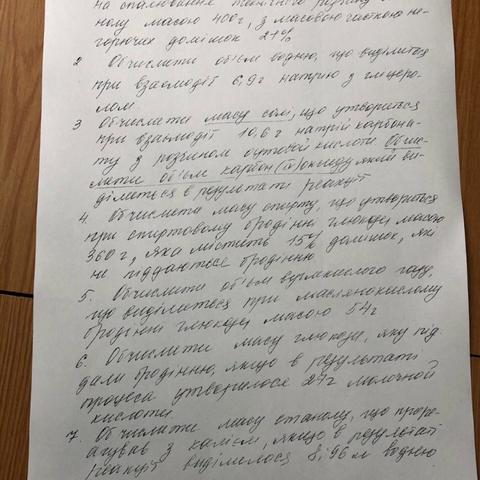 на спалювання технічного
нолу масою 400г, з масовою часткою не-
горючих домішок 21%
2 Обчислити об'єм водню, що виділиться
при взаємодії 6,9г натрію з гліцеро-
лом.
3 Обчислити масу солі, що утвориться
при взаємодії 10,6г натрій карбона-
ту з розчином оцтової кислоти. Обчис-
лити об'єм карбон(IV)оксиду, який ви-
ділиться в результаті реакції
4. Обчислити масу спирту, що утвориться
при спиртовому бродінні глюкози масою
360г, яка містить 15% домішок, які
не піддаються бродінню
5. Обчислити об'єм вуглекислого газу,
що виділиться при маслянокислому
бродінні глюкози масою 54г
6. Обчислити масу глюкози, яку під
дали бродінню, якщо в результаті
процеса утворилося 27г молочной
кислоти.
7. Обчислити масу етанолу, що проре-
агував з калієм, якщо в результаті
реакції виділилося 8,96л водню